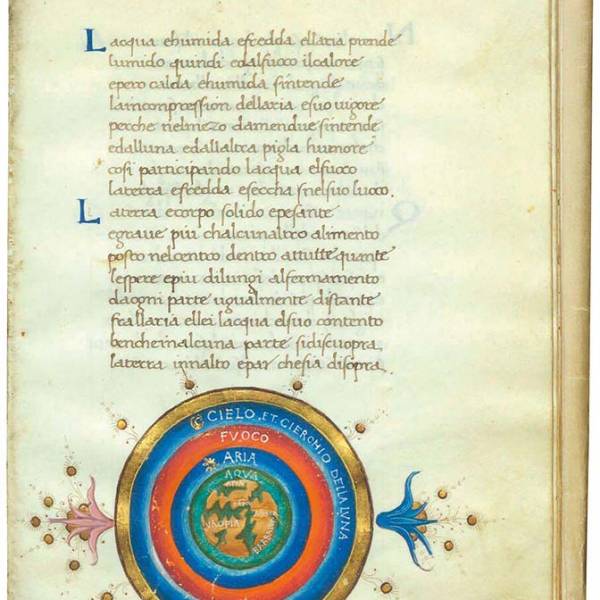 Lacqua ehumida efredda ellaria prende
lumido quindi edalfuoco ilcalore
epero calda ehumida sintende
laincompression dellaria esuo vigore
perche nelmezo damendue sintende
edalluna edallaltra pigla humore
cosi participando lacqua elfuoco
laterra efredda eseccha snelsuo luoco.
Laterra ecorpo solido epesante
egraue piu chalcunaltro alimento
posto nelcentro dentro attutte quante
lespere epiu dilungi alfermamento
daogni parte ugualmente distante
frallaria ellei lacqua elsuo contento
bencheinalcuna parte sidiscuopra
laterra innalto epar chesia disopra
CIELO ET CIERCHIO DELLA LUNA
FVOCO
ARIA
AQVA